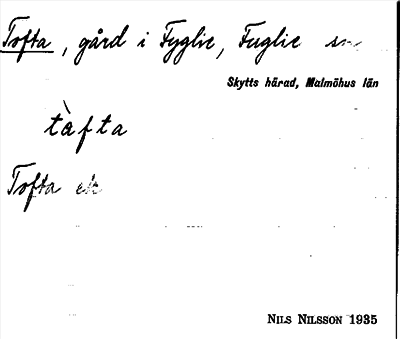 Tofta, gård i Fyglie, Fuglie sn
Skytts härad, Malmöhus län
tàfta
Tofta ek
NILS NILSSON 1935